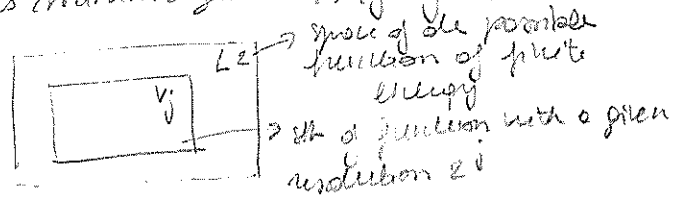 L2 → space of all possible
function of finite
energy
Vj
→ set of function with a given
resolution 2^j